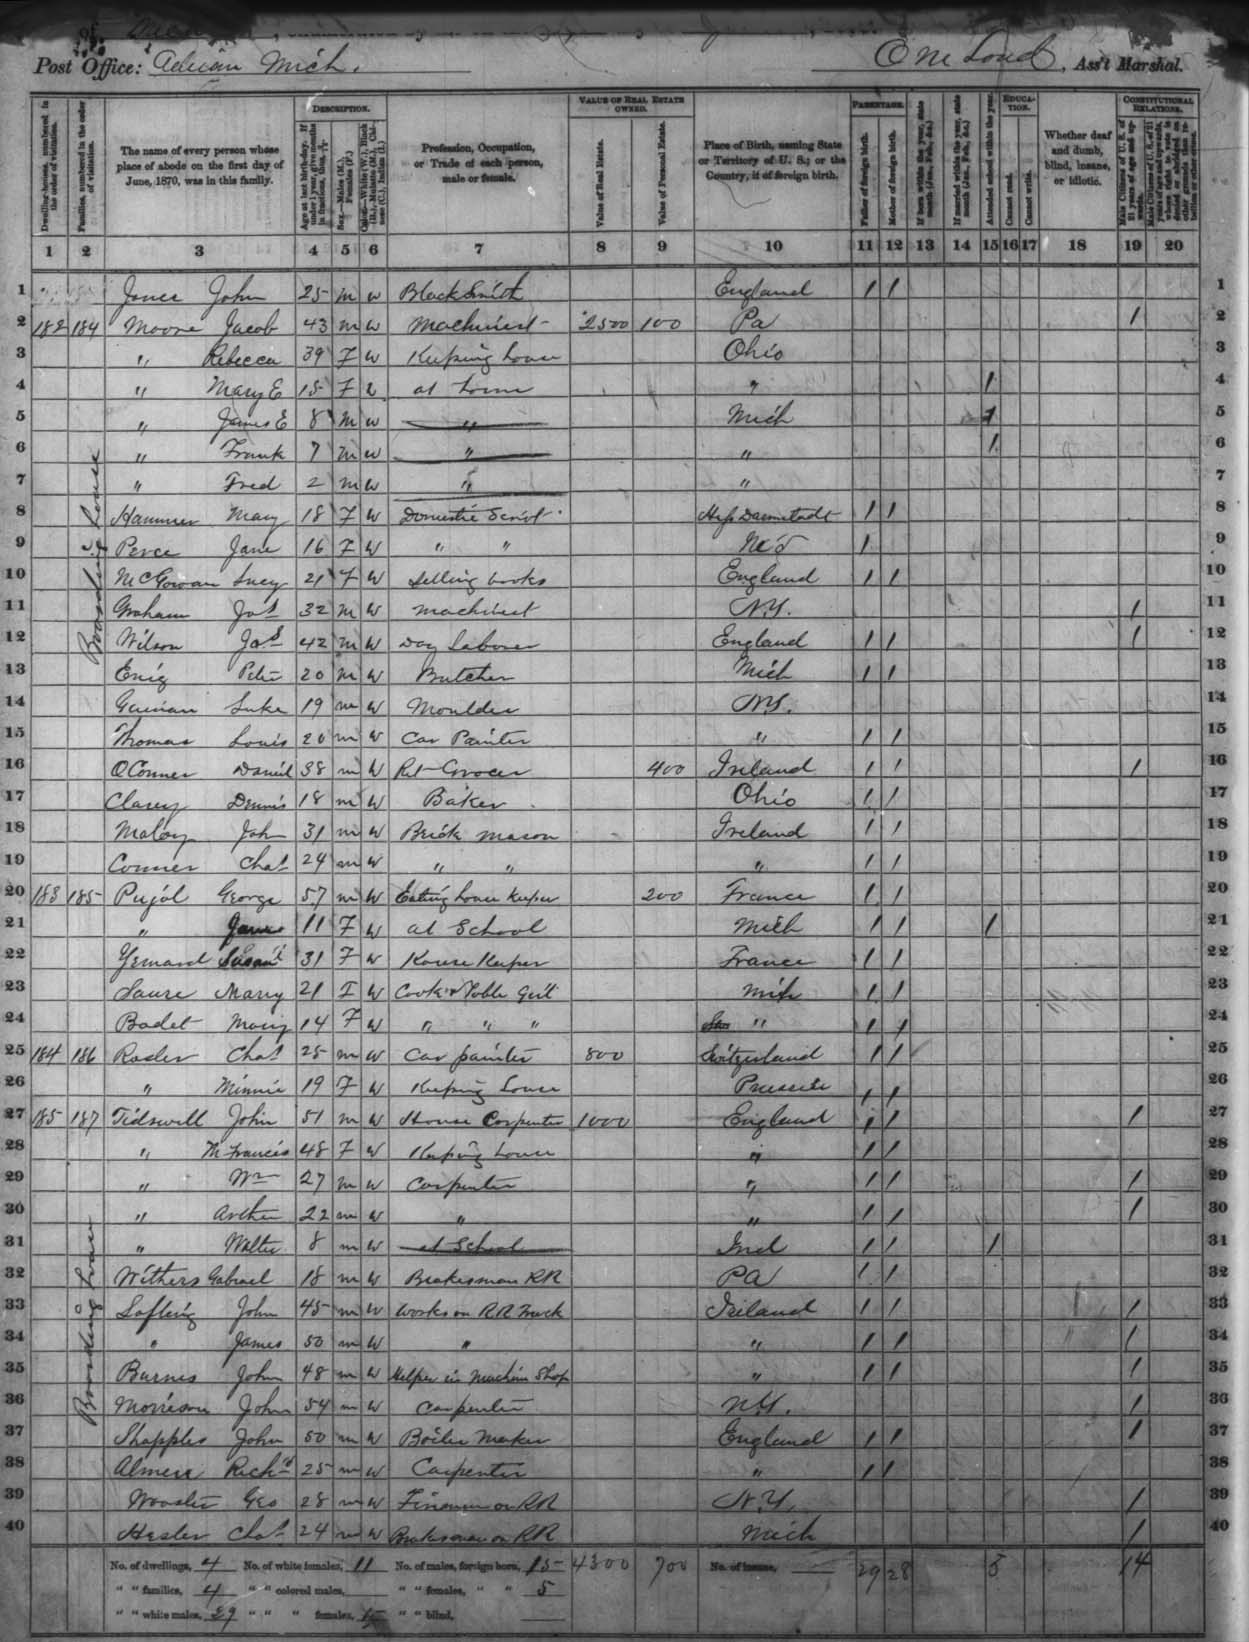 Post Office: Adrian Mich. O M Loud, Ass't Marshal.
Dwelling-houses, numbered in the order of visitation. Families, numbered in the order of visitation. The name of every person whose place of abode on the first day of June, 1870, was in this family. DESCRIPTION. Age at last birth-day. If under 1 year, give months in fractions, thus, Sex.—Males (M.), Females (F.) Color.—White (W.), Black (B.), Mulatto (M.), Chinese (C.), Indian (I.) Profession, Occupation, or Trade of each person, male or female. VALUE OF REAL ESTATE OWNED. Value of Real Estate. Value of Personal Estate. Place of Birth, naming State or Territory of U. S.; or the Country, if of foreign birth. PARENTAGE. Father of foreign birth. Mother of foreign birth. If born within the year, state month (Jan., Feb., &c.) If married within the year, state month (Jan., Feb., &c.) Attended school within the year. EDUCATION. Cannot read. Cannot write. Whether deaf and dumb, blind, insane, or idiotic. CONSTITUTIONAL RELATIONS. Male Citizens of U. S. of 21 years of age and upwards.
1 2 3 4 5 6 7 8 9 10 11 12 13 14 15 16 17 18 19 20
1 Jones John 25 m w BlackSmith England / / 1
2 182 184 Moore Jacob 43 m w Machinist 2500 100 Pa / 2
3 " Rebecca 39 F w Keeping house Ohio 3
4 " Mary E 15 F w at home " / 4
5 " James E 8 m w " Mich / 5
6 " Frank 7 m w " " / 6
7 " Fred 2 m w " " 7
8 Hammer Mary 18 F w Domestic Servt Hess Darmstadt / / 8
9 Perce Jane 16 F w " " / 9
10 McGowan Lucy 21 F w Selling books England / / 10
11 Graham Jas 32 m w Machinist N.Y. / 11
12 Wilson Jas 42 m w Day Laborer England / / / 12
13 Enig Peter 20 m w Butcher Mich / / 13
14 Luke 19 m w Moulder N.Y. 14
15 Thomas Louis 20 m w Car Painter " / / 15
16 OConner Daniel 38 m w Ret Grocer 400 Ireland / / / 16
17 Clarey Dennis 18 m w Baker Ohio / / 17
18 Maloy John 31 m w Brick Mason Ireland / / 18
19 Conner Chas 24 m w " " " / / 19
20 183 185 Pujol George 57 m w Eating house Keeper 200 France / / 20
21 " 11 F w at School Mich / / / 21
22 31 F w House Keeper France / / 22
23 Mary 21 F w Cook & Table Girl Mich / / 23
24 Badet Mary 14 F w " " " " / / 24
25 184 186 Rosler Chas 25 m w Car painter 800 Switzerland / / 25
26 " Minnie 19 F w Keeping house Prussia / / 26
27 185 187 Tidswell John 51 m w House Carpenter 1000 England / / / 27
28 " M Francis 48 F w Keeping house " / / 28
29 " Wm 27 m w Carpenter " / / / 29
30 " Arthur 22 m w " " / / / 30
31 " Walter 8 m w at School Ind / / / 31
32 Withers Gabrael 18 m w Brakesman RR Pa / / 32
33 Lafling John 45 m w Works on RR Track Ireland / / / 33
34 " James 50 m w " " / / / 34
35 Burnes John 48 m w Helper in Machine Shop " / / / 35
36 Morrison John 54 m w Carpenter N.Y. / 36
37 Shapples John 50 m w Boiler Maker England / / / 37
38 Almere Richd 25 m w Carpenter " / / 38
39 Wooster Geo 28 m w Fireman on RR N.Y. / 39
40 Hesler Chas 24 m w Brakesman on RR Mich / 40
Boarding house
Boarding house
No. of dwellings, 4 No. of white females, 11 No. of males, foreign born, 15 4300 700 No. of insane, 29 28 5 14
" " families, 4 " " colored males, " " females, " " 5
" " white males, 29 " " " females, " " blind,